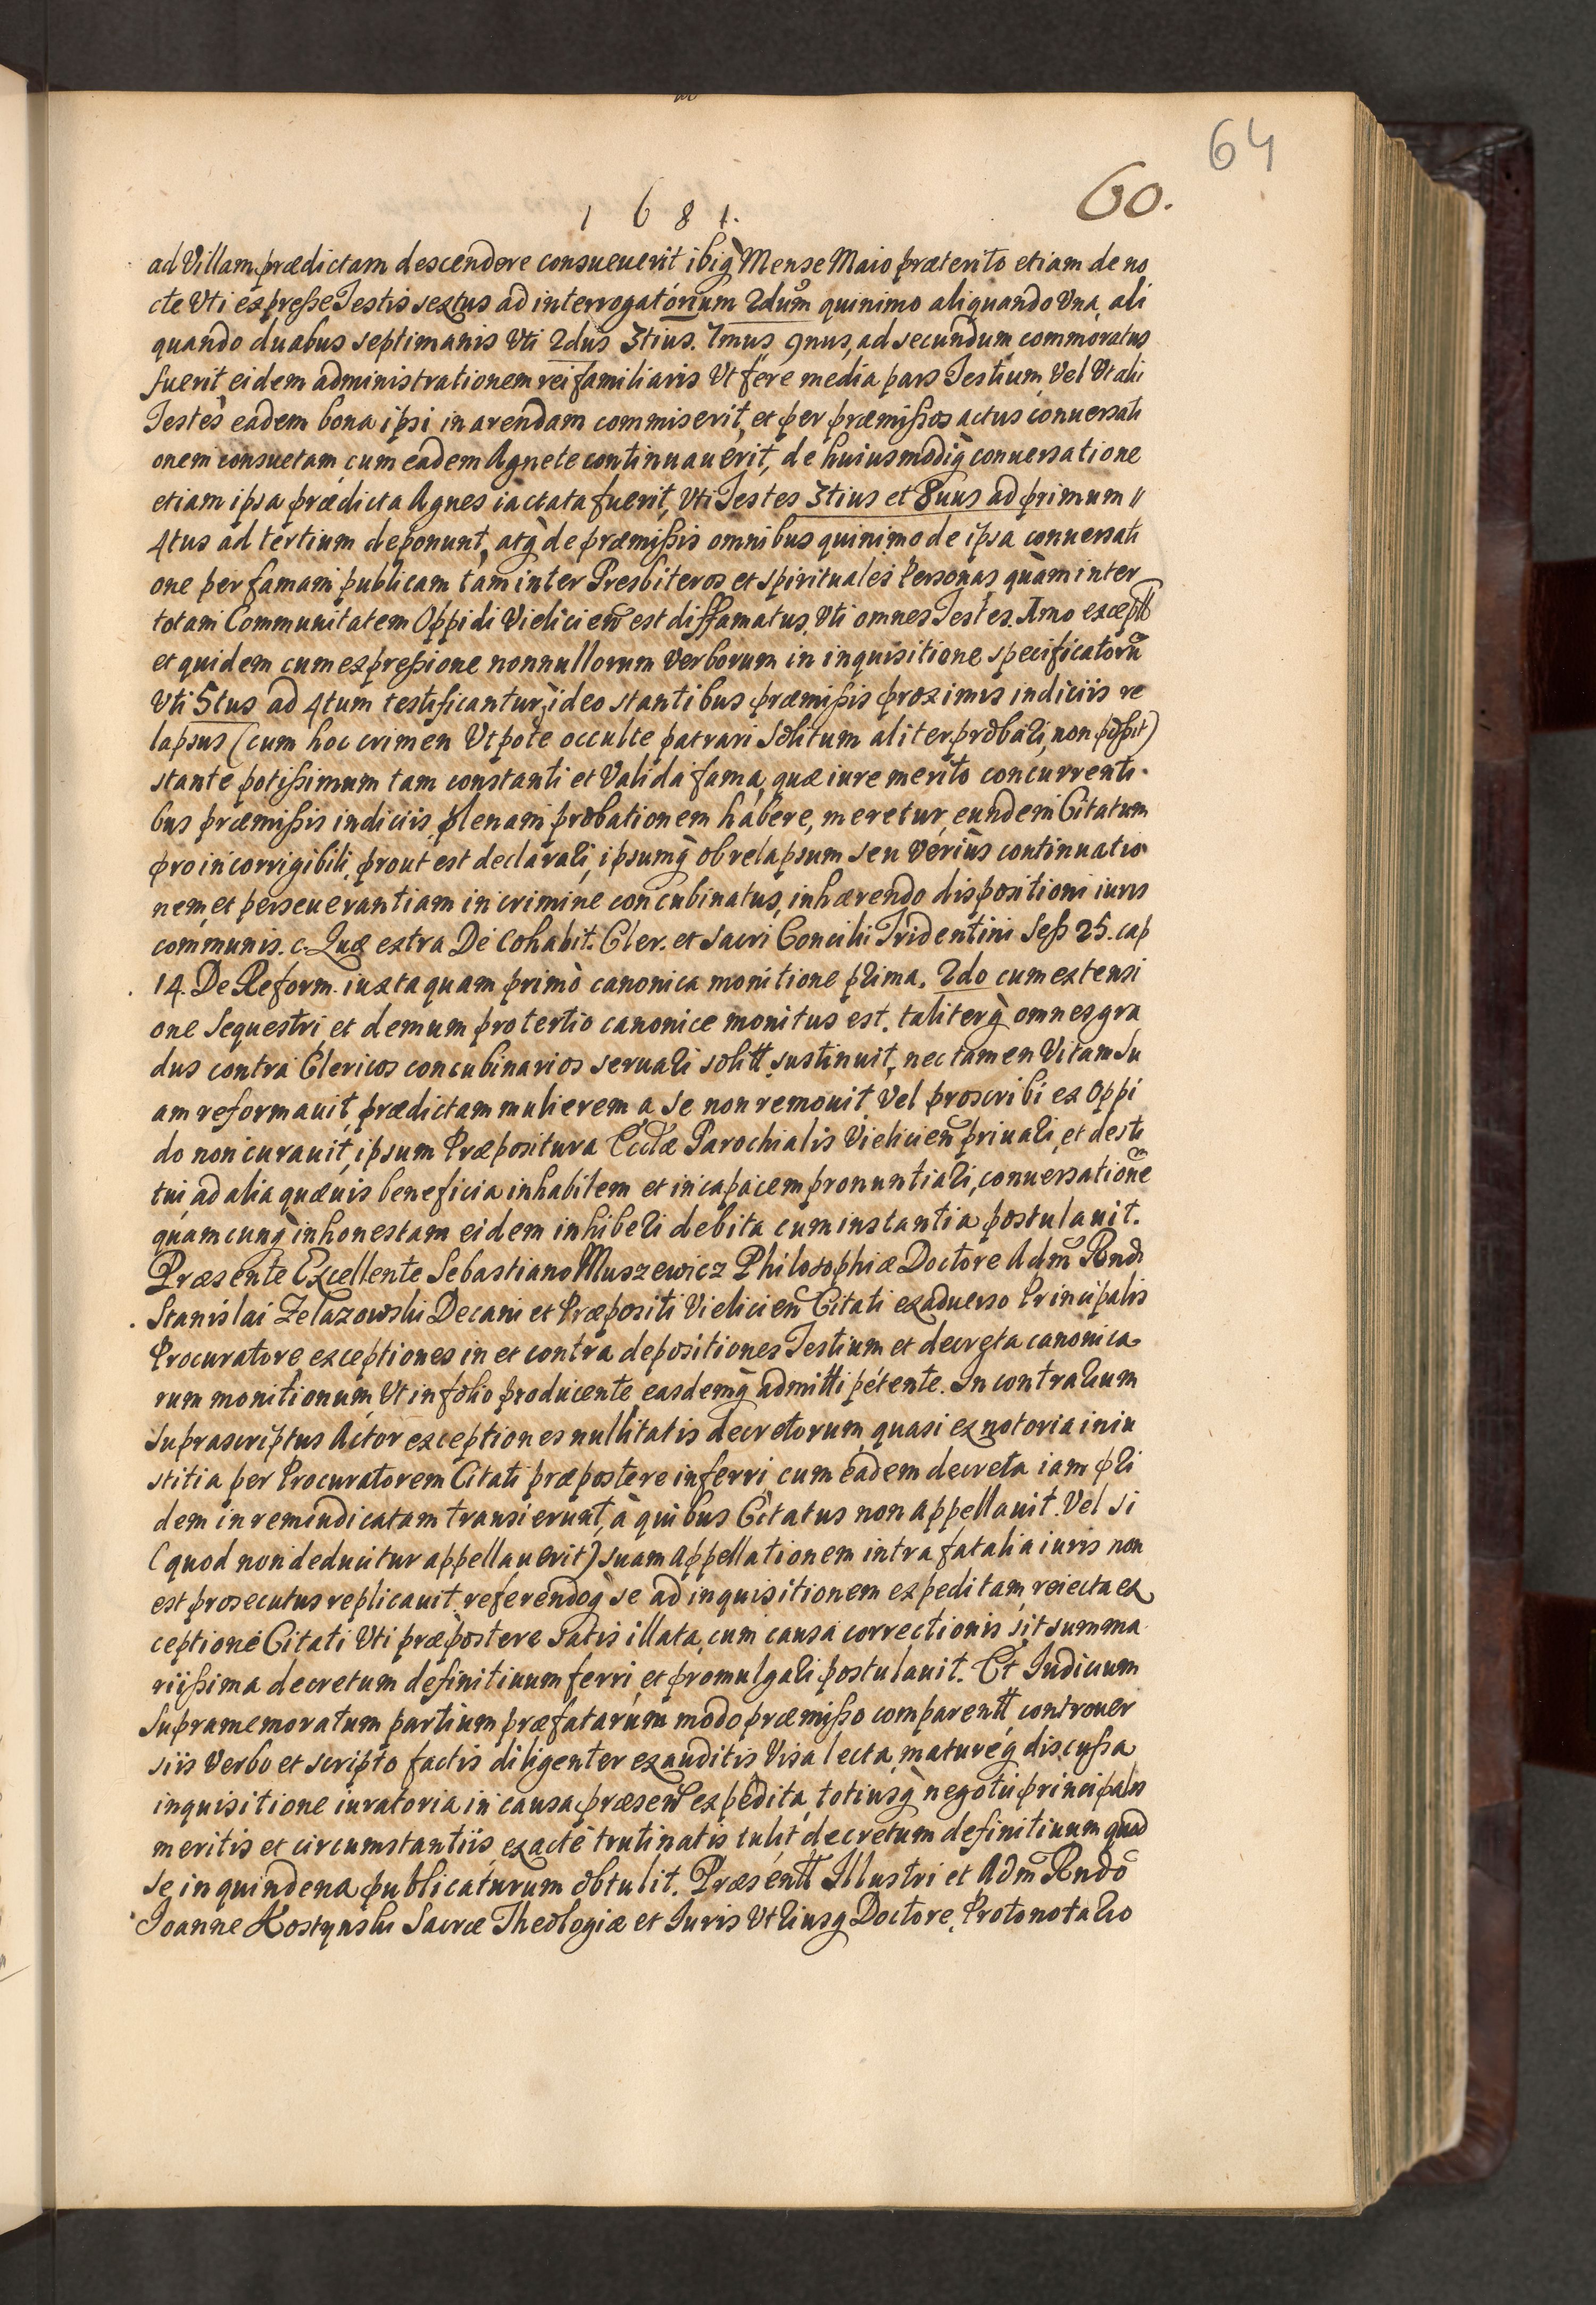 64
60.
1 6 8 1.
ad Villam prædictam descendere consueuerit ibiq̀ Mense Maio præterito etiam de no
cte Vti expresse Testis sextus ad interrogatórium 2dum quinimo aliquando Vna, ali
quando duabus septimanis Vti 2dus 3tius. 7mus 9nus, ad secundum commoratus
fuerit eidem administrationem rei familiaris Vt fere media pars Testium Vel Vt alii
Testes eadem bona ipsi in arendam commiserit, et per præmissos actus conuersati
onem consuetam cum eadem Agnete continuauerit, de huiusmodiq̀ conuersatione
etiam ipsa prædicta Agnes iactata fuerit, Vti Testes 3tius et 8uus ad primum //
4tus ad tertium deponunt, atq̀ de præmissis omnibus quinimo de ipsa conuersati
one per famam publicam tam inter Presbiteros et spirituales Personas quàm inter
totam Communitatem Oppidi Vielicien̄ est diffamatus, Vti omnes Testes. Imo exceptt
et quidem cum expressione nonnullorum Verborum in inquisitione specificatorū
Vti 5tus ad 4tum testificantur, ideo stantibus præmissis proximis indiciis re
lapsus (cum hoc crimen Vtpote occulte patrari solitum aliter probari non possit)
stante potissimum tam constanti et Valida fama, quæ iure merito concurrenti-
bus præmissis indiciis plenam probationem habere, meretur, eundem Citatum
pro incorrigibili, prout est declarari, ipsumq̀ ob relapsum seu Veriùs continuatio
nem et perseuerantiam in crimine concubinatus, inhærendo dispositioni iuris
communis. c. Quæ extra De Cohabit. Cler. et sacri Concilii Tridentini Sess 25. cap
14. De Reform. iuxta quam primò canonica monitione prima, 2do cum extensi
one Sequestri, et demum pro tertio canonice monitus est, taliterq̀ omnes gra
dus contra Clericos concubinarios seruari solitt sustinuit, nec tamen Vitam su
am reformauit, prædictam mulierem a se non remouit, Vel proscribi ex Oppi
do non curauit, ipsum Præpositura Ecclæ Parochialis Vielicien̄ priuari, et desti
tui, ad alia quæuis beneficia inhabilem et incapacem pronuntiari, conuersationē
quamcunq̀ inhonestam eidem inhiberi debita cum instantia postulauit.
Præsente Excellente Sebastiano Muszewicz Philosophiæ Doctore Adm̄ Rndi
Stanislai Zelazowski Decani et Præpositi Vielicien̄ Citati ex aduerso Principalis
Procuratore exceptiones in et contra depositiones Testium et decreta canonica-
rum monitionum, Vt in folio producente, easdemq̀ admitti petente. In contrarium
suprascriptus Actor exceptiones nullitatis decretorum quasi ex notoria iniu
stitia per Procuratorem Citati præpostere inferri, cum eadem decreta iam pri
dem in rem iudicatam transierunt, à quibus Citatus non appellauit. Vel si
(quod non deducitur appellauerit) suam appellationem intra fatalia iuris non
est prosecutus replicauit, referendoq̀ se ad inquisitionem expeditam, reiecta ex
ceptione Citati Vti præpostere satis illata, cum causa correctionis sit summa
riissima decretum definitiuum ferri, et promulgari postulauit. Et Iudicium
supramemoratum partium præfatarum modo præmisso comparentt controuer
siis Verbo et scripto factis diligenter exauditis Visa lecta, matureq̀ discussa
inquisitione iuratoria in causa præsen̄ expedita, totiusq̀ negotii principalis
meritis et circumstantiis, exactè trutinatis tulit decretum definitiuum quod
se in quindena publicaturum obtulit. Præsentt Illustri et Adm̄ Rndō
Ioanne Kostynski Sacræ Theologiæ et Iuris Vtriusq Doctore, Protonotario